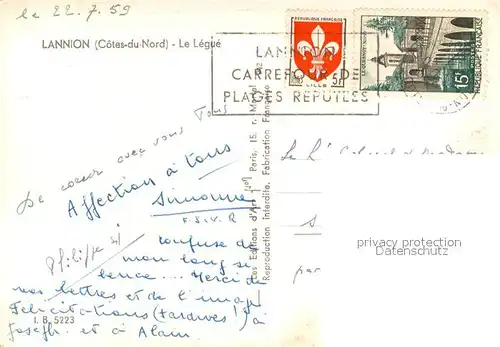 le 22.7.59
LANNION (Côtes-du-Nord) - Le Légué
REPUBLIQUE FRANÇAISE
5F
LILLE
15F
REPUBLIQUE FRANÇAISE
LANNION
CARREFOUR DE
PLAGES REPUTEES
De coeur avec vous Tous
Affection à tous
Simonne
F.S.V.R
Philippe
confuse de
mon long si
lence ... Merci de
vos lettres et de l'image
Félicitations (tardives!) à
Joseph et à Alain
I. B. 5223
Les Editions d'Art Paris, 15, r.
Reproduction Interdite. Fabrication Française
Le
Colonel et Madame
S
par
privacy protection
Datenschutz